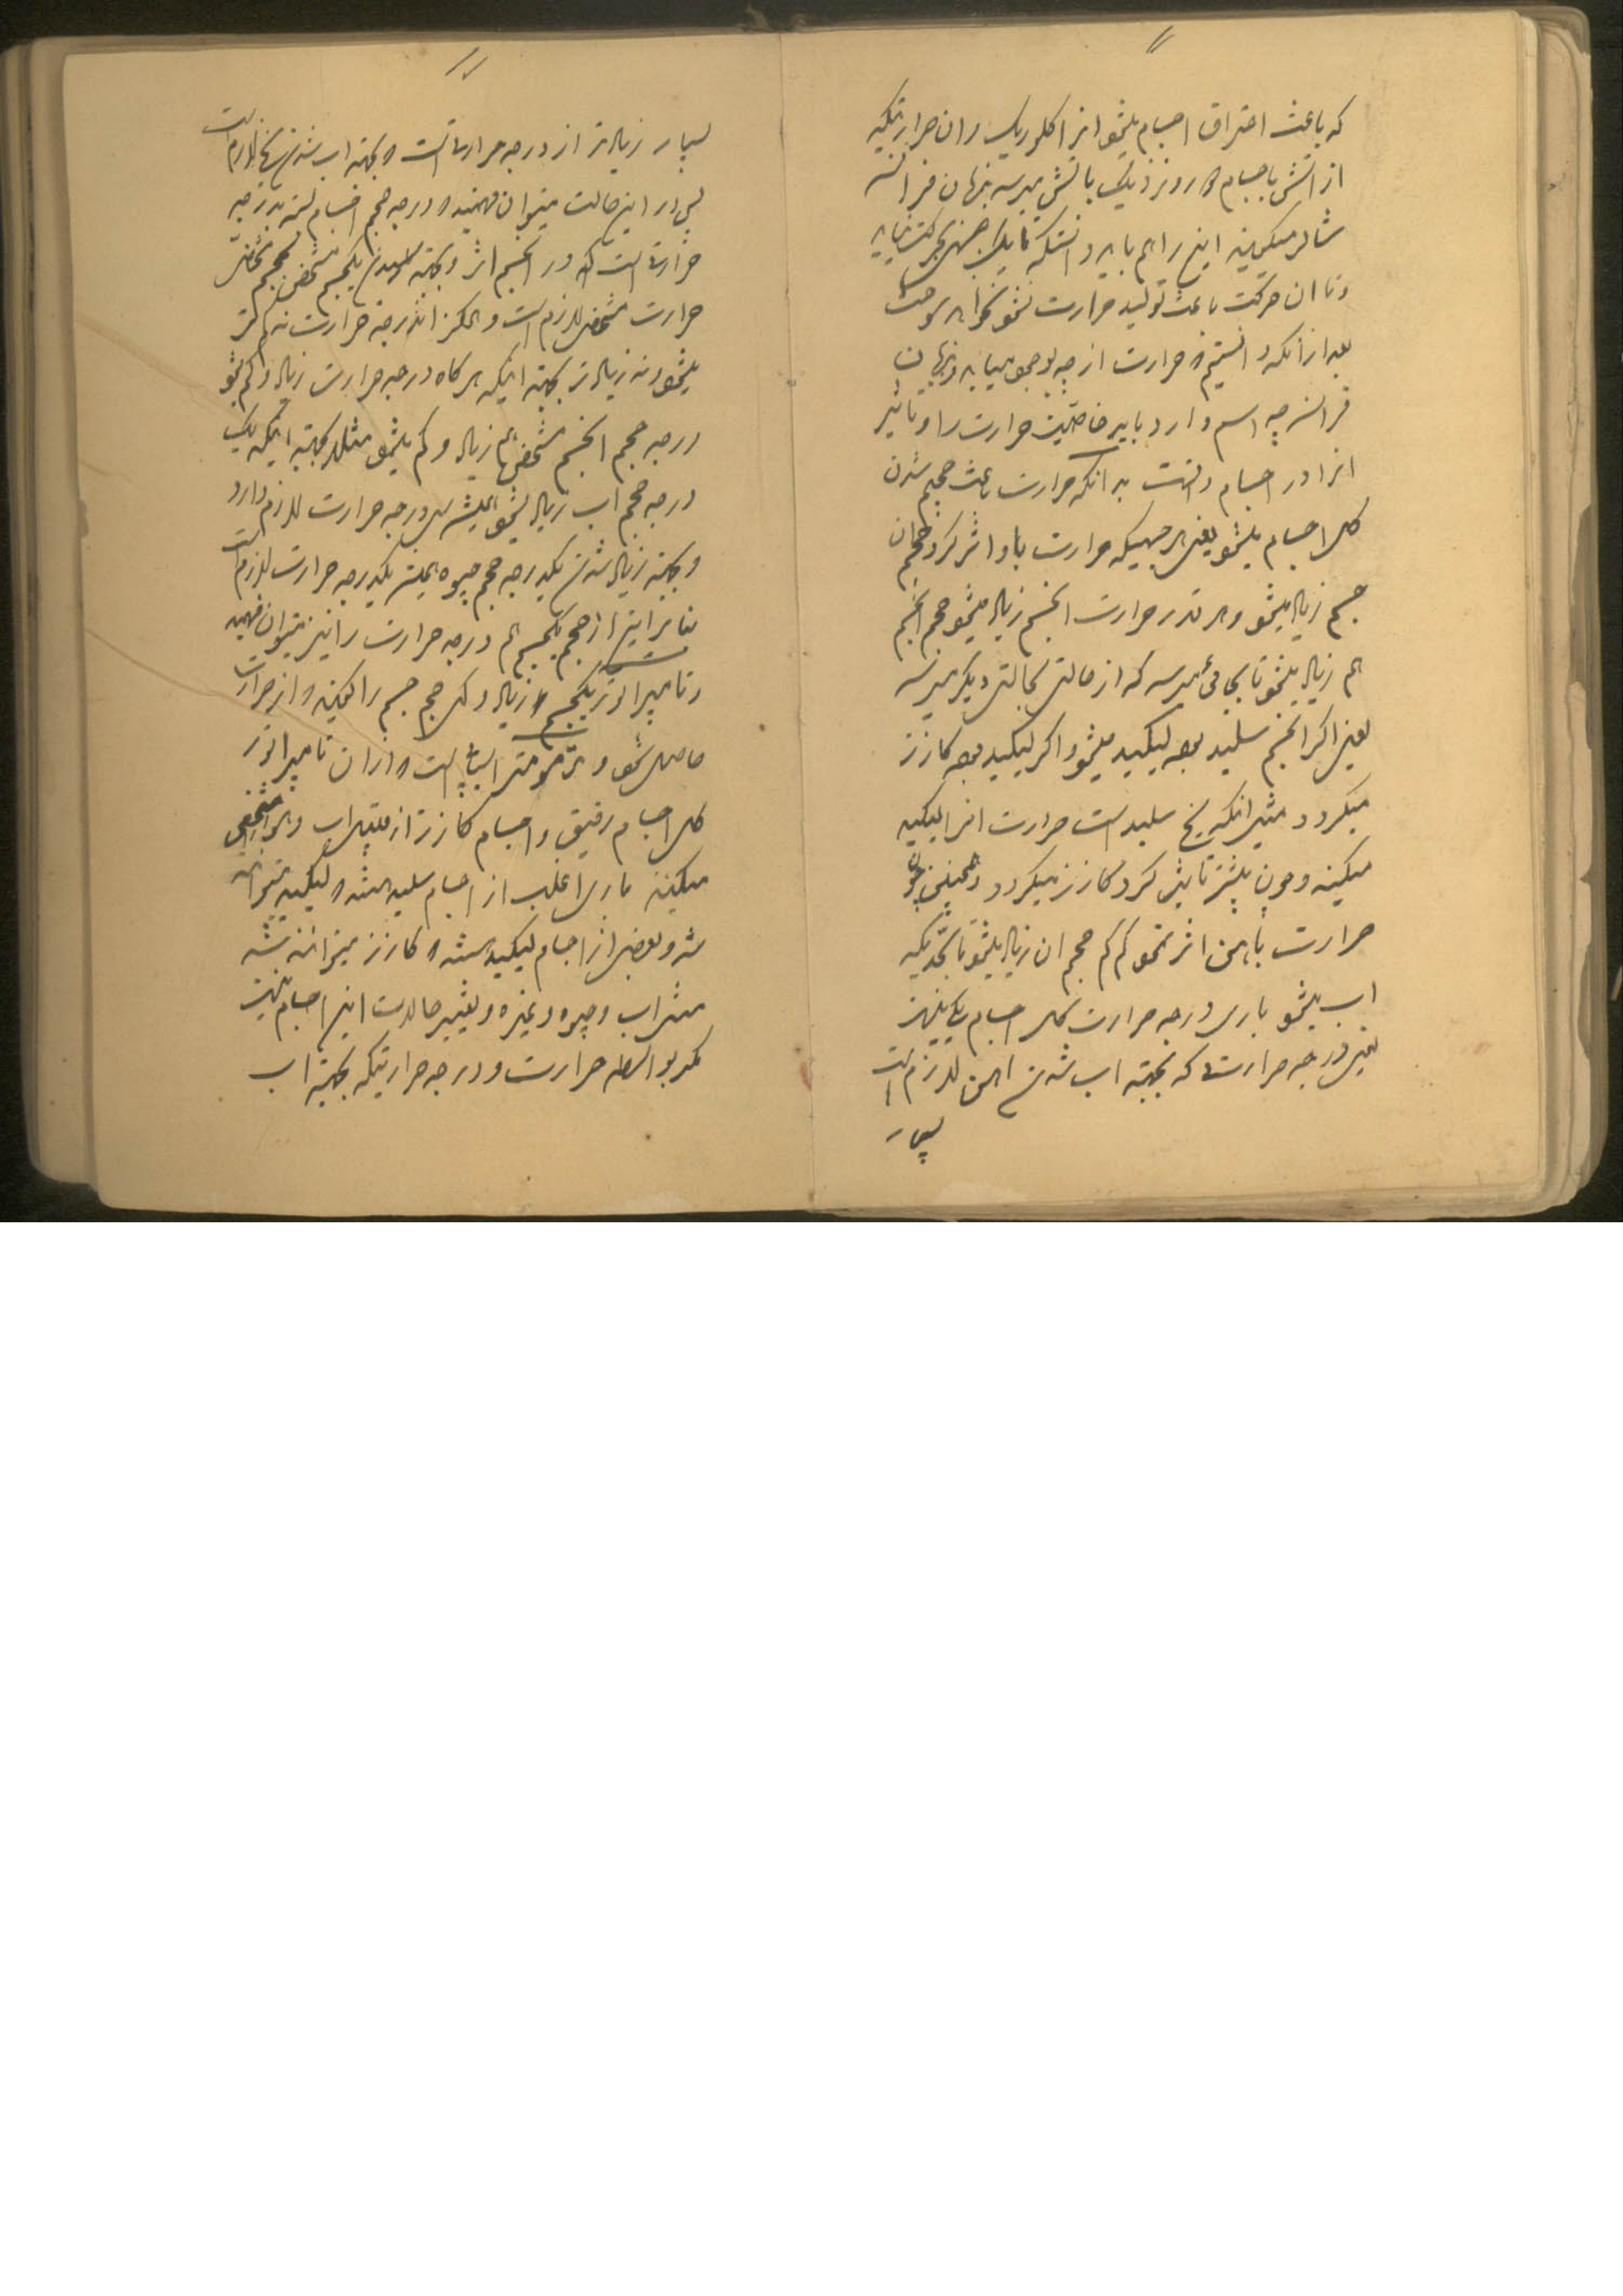 که باعث احتراق اجسام میشود انرا کلوریک و ان حرارتیکه
از اتش باجسام دور و نزدیک باتش میرسد بزبان فرانسه
شالر میگویند این را هم باید دانست که تا یک چیزی حرکت نیابد
و تا ان حرکت باعث تولید حرارت نشود نخواهد سوخت
بعد از آنکه دانستیم که حرارت از چه بوجود میاید و بزبان
فرانسه چه اسم دارد باید خاصیت حرارت را و تاثیر
انرا در اجسام دانست بدانکه حرارت باعث حجیم شدن
کل اجسام میشود یعنی هر جسمیکه حرارت باو اثر کرد حجم ان
جسم زیاد میشود و هر قدر حرارت انجسم زیاد میشود حجم انجسم
هم زیاد میشود تا بجائی میرسد که از حالتی بحالتی دیگر میرسد
یعنی اگر انجسم سلید بوده لیکید میشود و اگر لیکید بوده کازز
میگردد مثل انکه یخ سلید است حرارت انرا لیکید
میکند و چون بیشتر تاثیر کرد کازز میگردد و همچنین چون
حرارت باهن اثر نمود کم کم حجم ان زیاد میشود تا بحدیکه
اب میشود باری درجه حرارت کل اجسام یکی نیست
یعنی درجه حرارتی که بجهته اب شدن اهن لازم است
بسیار
بسیار زیادتر از درجه حرارتی است که بجهته اب شدن یخ لازم است
پس در این حالت میتوان فهمید که درجه حجم اجسام بسته بدرجه
حرارتی است که در انجسم اثر و بجهته رسیدن یکجسم مشخص بحجم مشخص
حرارت مشخص لازم است و هرگز اندرجه حرارت نه کمتر
میشود و نه زیادتر بجهته اینکه هر گاه درجه حرارت زیاد و کم بشود
درجه حجم انجسم مشخص هم زیاد و کم میشود مثلا بجهته اینکه یک
درجه حجم اب زیاد بشود همیشه سی درجه حرارت لازم دارد
و بجهته زیاد شدن یکدرجه حجم جیوه همیشه یکدرجه حرارت لازم است
بنابراین از حجم یکجسم هم درجه حرارت را نیز میتوان فهمید
و تامپراتور یکجسم که زیاد و کمی حجم جسم را گویند که از حرارت
حاصل شود و ترمومتر اسبابی است که از ان تامپراتور
کل اجسام رقیق و اجسام کازز از قبیل اب و هوا را مشخص
میکنند باری اغلب از اجسام سلید هستند که لیکید میتوانند
شد و بعضی از اجسام لیکید هستند که کازز میتوانند شد
مثل اب و جیوه و غیره و تغییر حالات این اجسام نیست
مگر بواسطه حرارت و درجه حرارتیکه بجهته اب